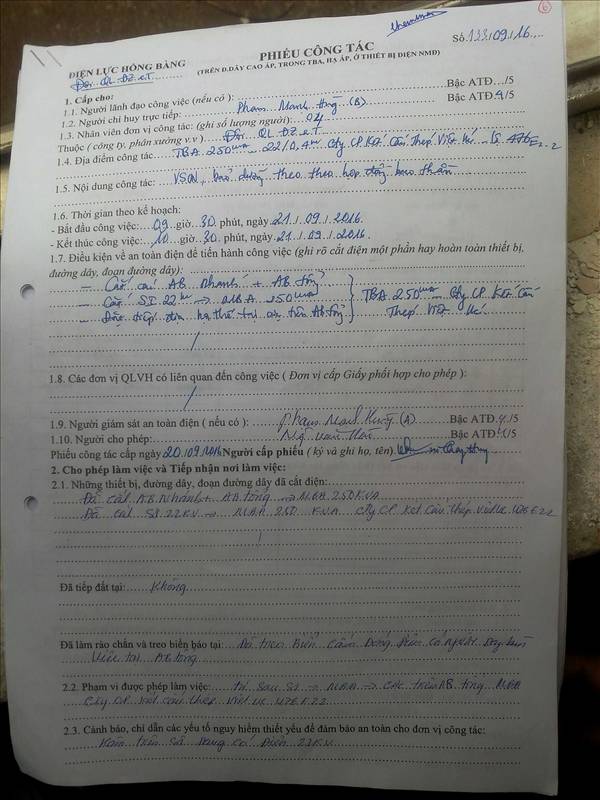 ĐIỆN LỰC HỒNG BÀNG
Đội QL ĐZ &T
PHIẾU CÔNG TÁC
Số 133/09/16
(TRÊN Đ.DÂY CAO ÁP, TRONG TBA, HẠ ÁP, Ở THIẾT BỊ ĐIỆN NMĐ)
6
1. Cấp cho:
1.1. Người lãnh đạo công việc (nếu có ): Bậc ATĐ.../5
1.2. Người chỉ huy trực tiếp: Phạm Mạnh (B) Bậc ATĐ.4/5
1.3. Nhân viên đơn vị công tác: (ghi số lượng người): 04
Thuộc ( công ty, phân xưởng v.v ) Đội QL ĐZ &T
1.4. Địa điểm công tác: TBA 250 - 22/0,4 Cty CP Kết Cấu Thép Việt Úc - lộ 476E2-2
1.5. Nội dung công tác: VSCN, bảo dưỡng theo theo hợp đồng bao thầu
1.6. Thời gian theo kế hoạch:
- Bắt đầu công việc: 09 giờ 30 phút, ngày 21/09/2016.
- Kết thúc công việc: 10 giờ 30 phút, ngày 21/09/2016.
1.7. Điều kiện về an toàn điện để tiến hành công việc (ghi rõ cắt điện một phần hay hoàn toàn thiết bị,
đường dây, đoạn đường dây):
- Cắt AB nhánh + AB tổng
- Cắt SI 22 → MBA 250 TBA 250 - Cty CP Kết Cấu
- hạ thế tại AB tổng Thép Việt Úc
1.8. Các đơn vị QLVH có liên quan đến công việc ( Đơn vị cấp Giấy phối hợp cho phép ):
1.9. Người giám sát an toàn điện ( nếu có ): Phạm Mạnh (A) Bậc ATĐ.4/5
1.10. Người cho phép: Ngô Văn Bậc ATĐ /5
Phiếu công tác cấp ngày 20/09/2016 Người cấp phiếu ( ký và ghi họ, tên)
2. Cho phép làm việc và Tiếp nhận nơi làm việc:
2.1. Những thiết bị, đường dây, đoạn đường dây đã cắt điện:
Đã cắt AB Nhánh + AB tổng → MBA 250KVA
Đã cắt SI 22KV → MBA 250 KVA Cty CP Kết Cấu thép Việt Úc 476E22
Đã tiếp đất tại: Không
Đã làm rào chắn và treo biển báo tại: Đã treo Biển Cấm Đóng Điện có người Đang làm
Việc tại AB tổng
2.2. Phạm vi được phép làm việc: Từ sau SI → MBA → AB tổng MBA
Cty CP kết cấu thép Việt Úc 476E22
2.3. Cảnh báo, chỉ dẫn các yếu tố nguy hiểm thiết yếu để đảm bảo an toàn cho đơn vị công tác:
trên Đang có Điện 22KV